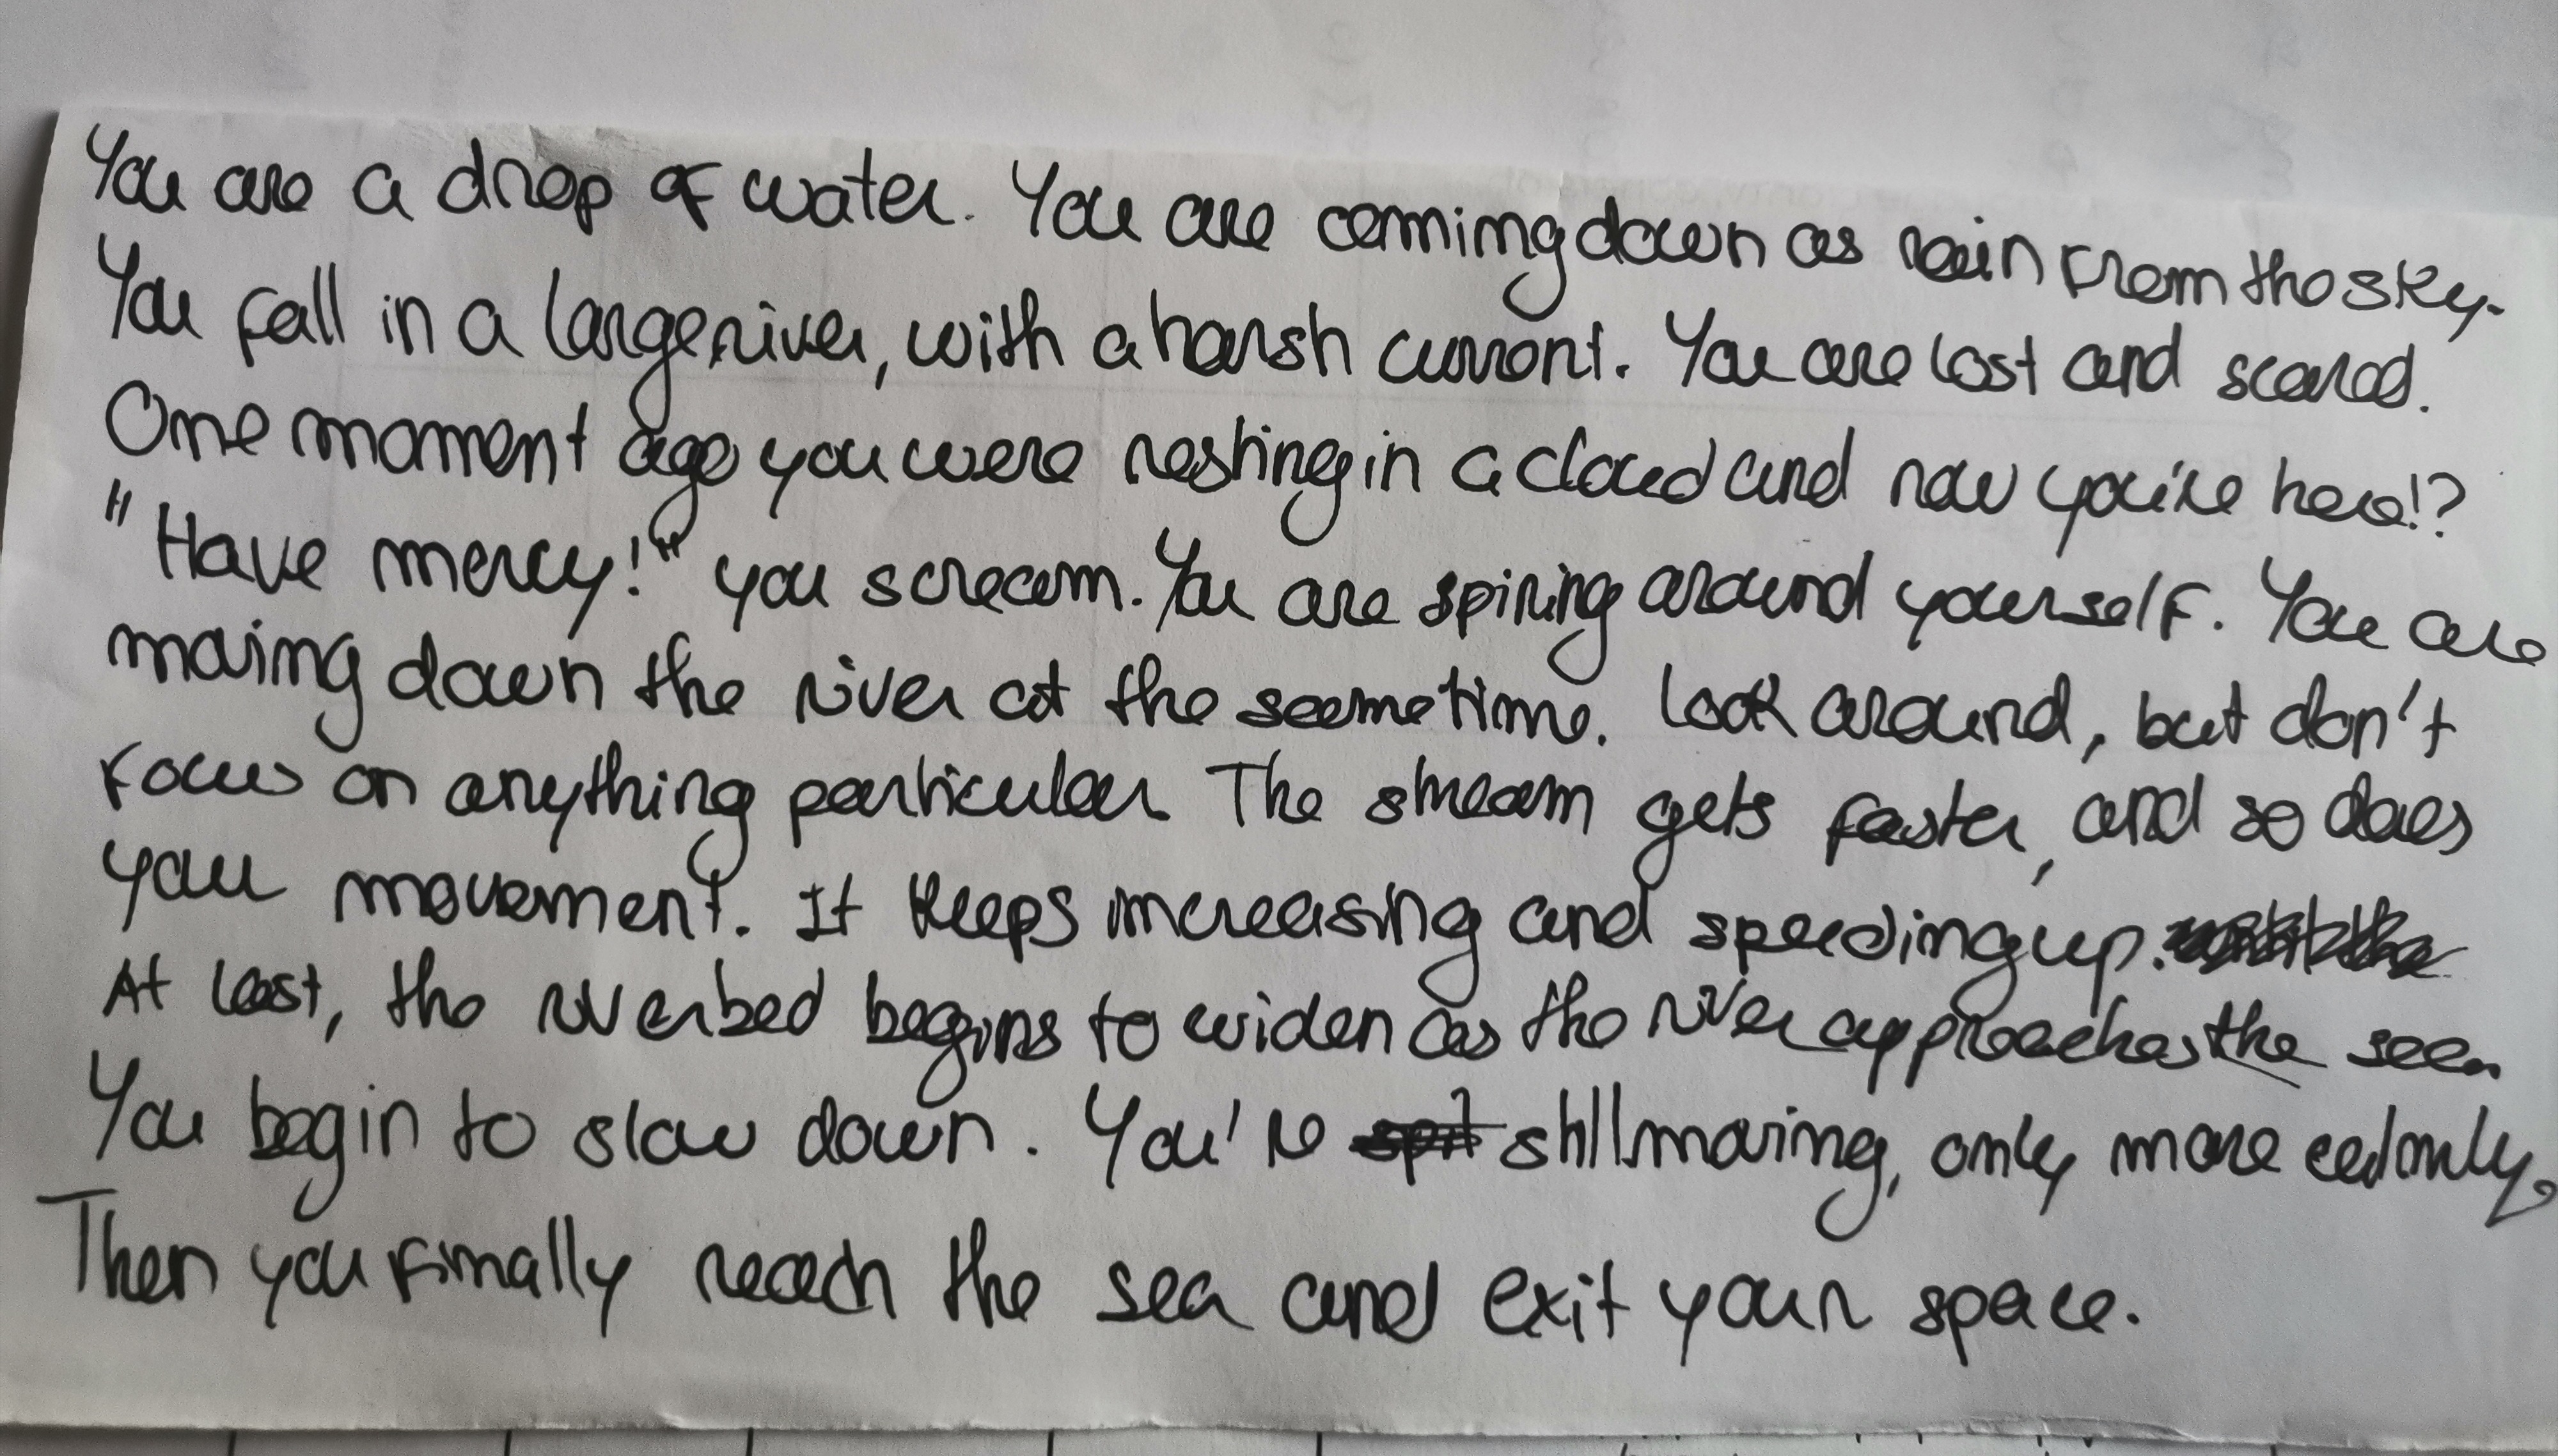 You are a drop of water. You are coming down as rain from the sky.
You fall in a large river, with a harsh current. You are lost and scared.
One moment ago you were resting in a cloud and now you're here!?
"Have mercy!" you scream. You are spining around yourself. You are
moving down the river at the same time. Look around, but don't
focus on anything particular. The stream gets faster, and so does
your movement. It keeps increasing and speeding up.
At last, the riverbed begins to widen as the river approaches the sea.
You begin to slow down. You're still moving, only more calmly.
Then you finally reach the sea and exit your space.